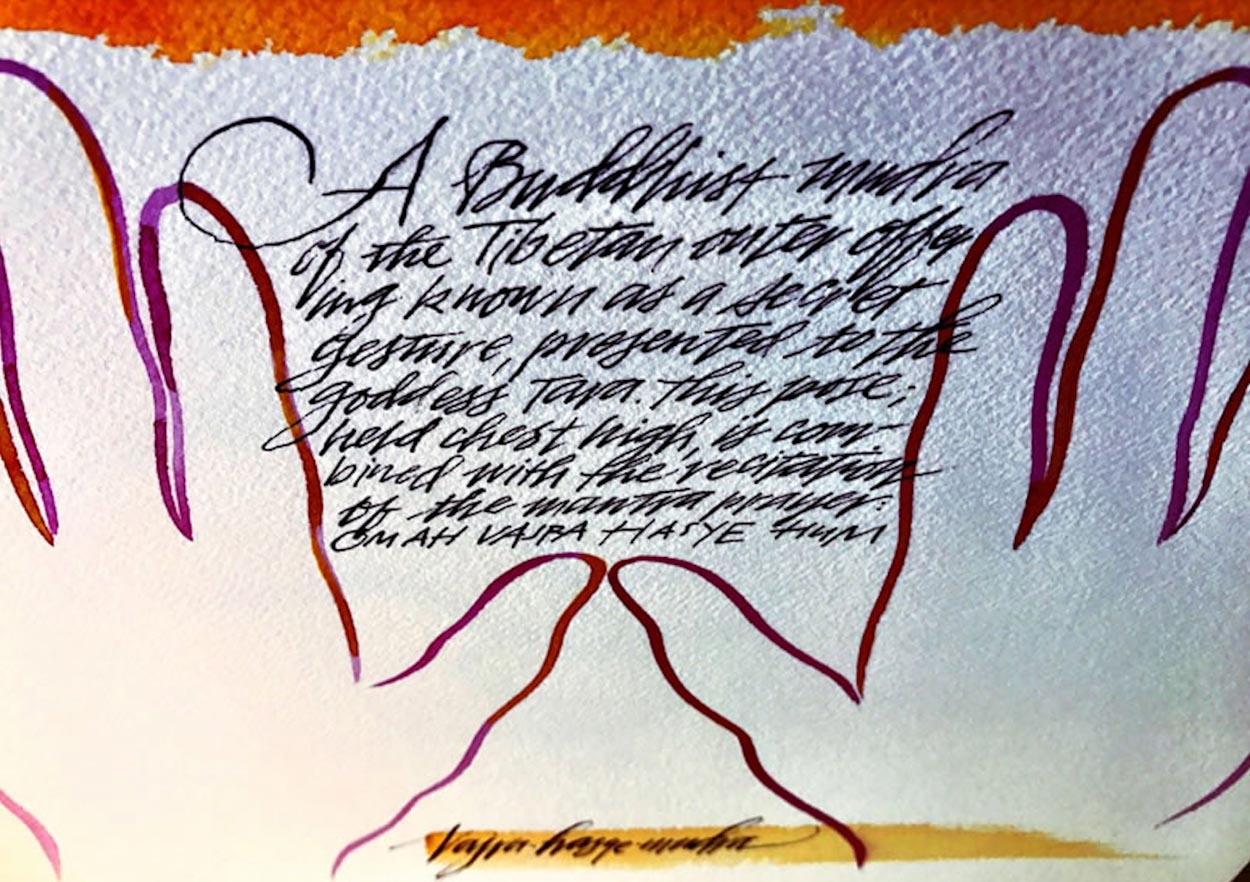 A Buddhist mudra
of the Tibetan outer offer
ing known as a secret
gesture, presented to the
goddess Tara. This pose;
held chest high, is com-
bined with the recitation
of the mantra prayer:
OM AH VAJRA HASYE HUM
Vajra-hasye-mudra